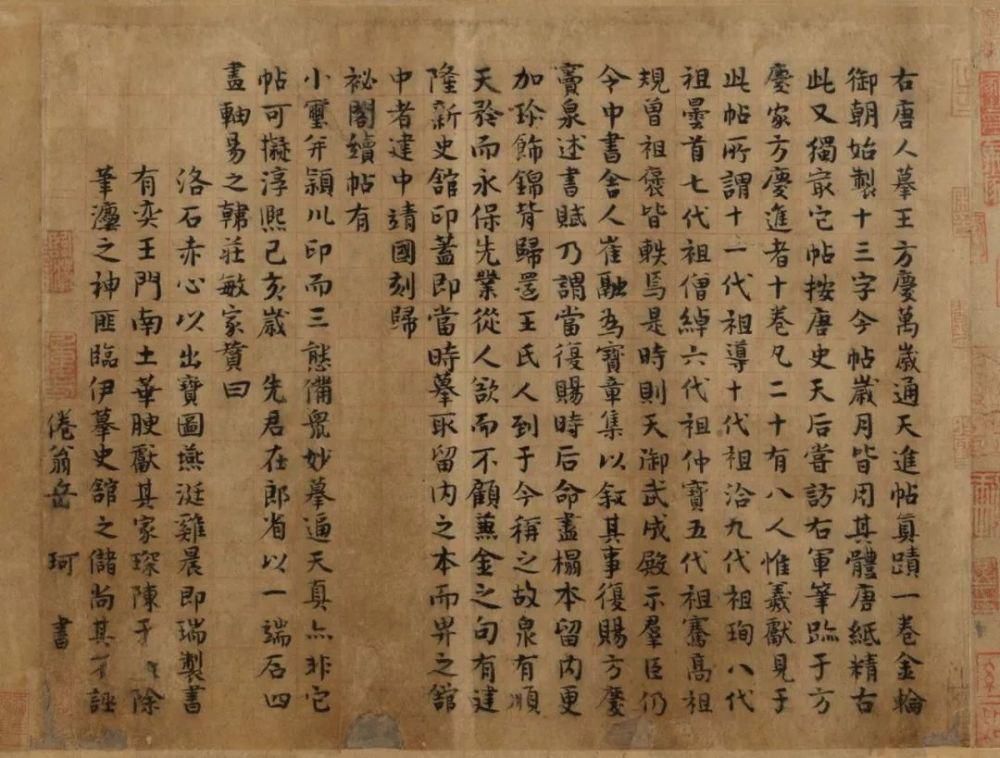 右唐人摹王方慶萬歲通天進帖真蹟一卷金輪
御朝始製十三字今帖歲月皆用其體唐紙精古
此又獨冣它帖按唐史天后嘗訪右軍筆跡于方
慶家方慶進者十卷凡二十有八人惟羲獻見于
此帖所謂十一代祖導十代祖洽九代祖珣八代
祖曇首七代祖僧綽六代祖仲寶五代祖騫高祖
規曾祖褒皆軼焉是時則天御武成殿示羣臣仍
令中書舍人崔融為寶章集以敘其事復賜方慶
竇臮述書賦乃謂當復賜時后命盡榻本留內更
加珍飾錦背歸還王氏人到于今稱之故臮有順
天矜而永保先業從人欲而不顧蒹金之句有建
隆新史館印蓋即當時摹取留內之本而畀之館
中者建中靖國刻歸
祕閣續帖有
小璽并潁川印而三態備衆妙摹逼天真亦非它
帖可擬淳熙己亥歲 先君在郎省以一端石四
畫軸易之韓莊敏家贊曰
洛石赤心以出寶圖燕涎雞晨即瑞製書
有奕王門南土華腴獻其家琛陳 除
筆灋之神匪臨伊摹史館之儲尚其不誣
倦翁岳 珂 書